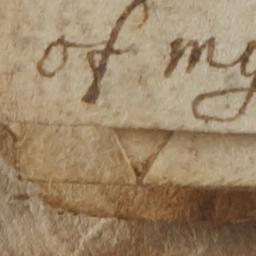 of my